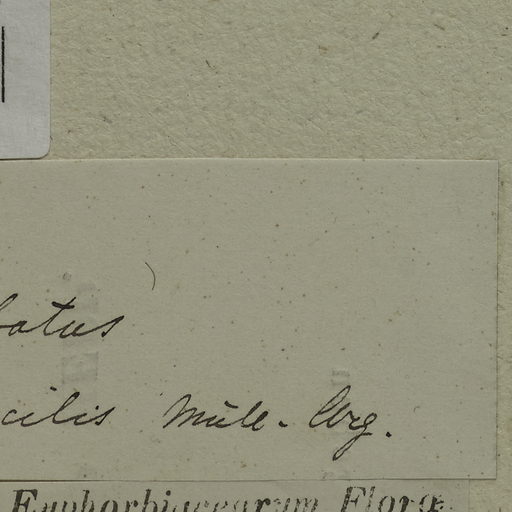 batus
cilis Müll-Arg.
Euphorbiacearum Flora